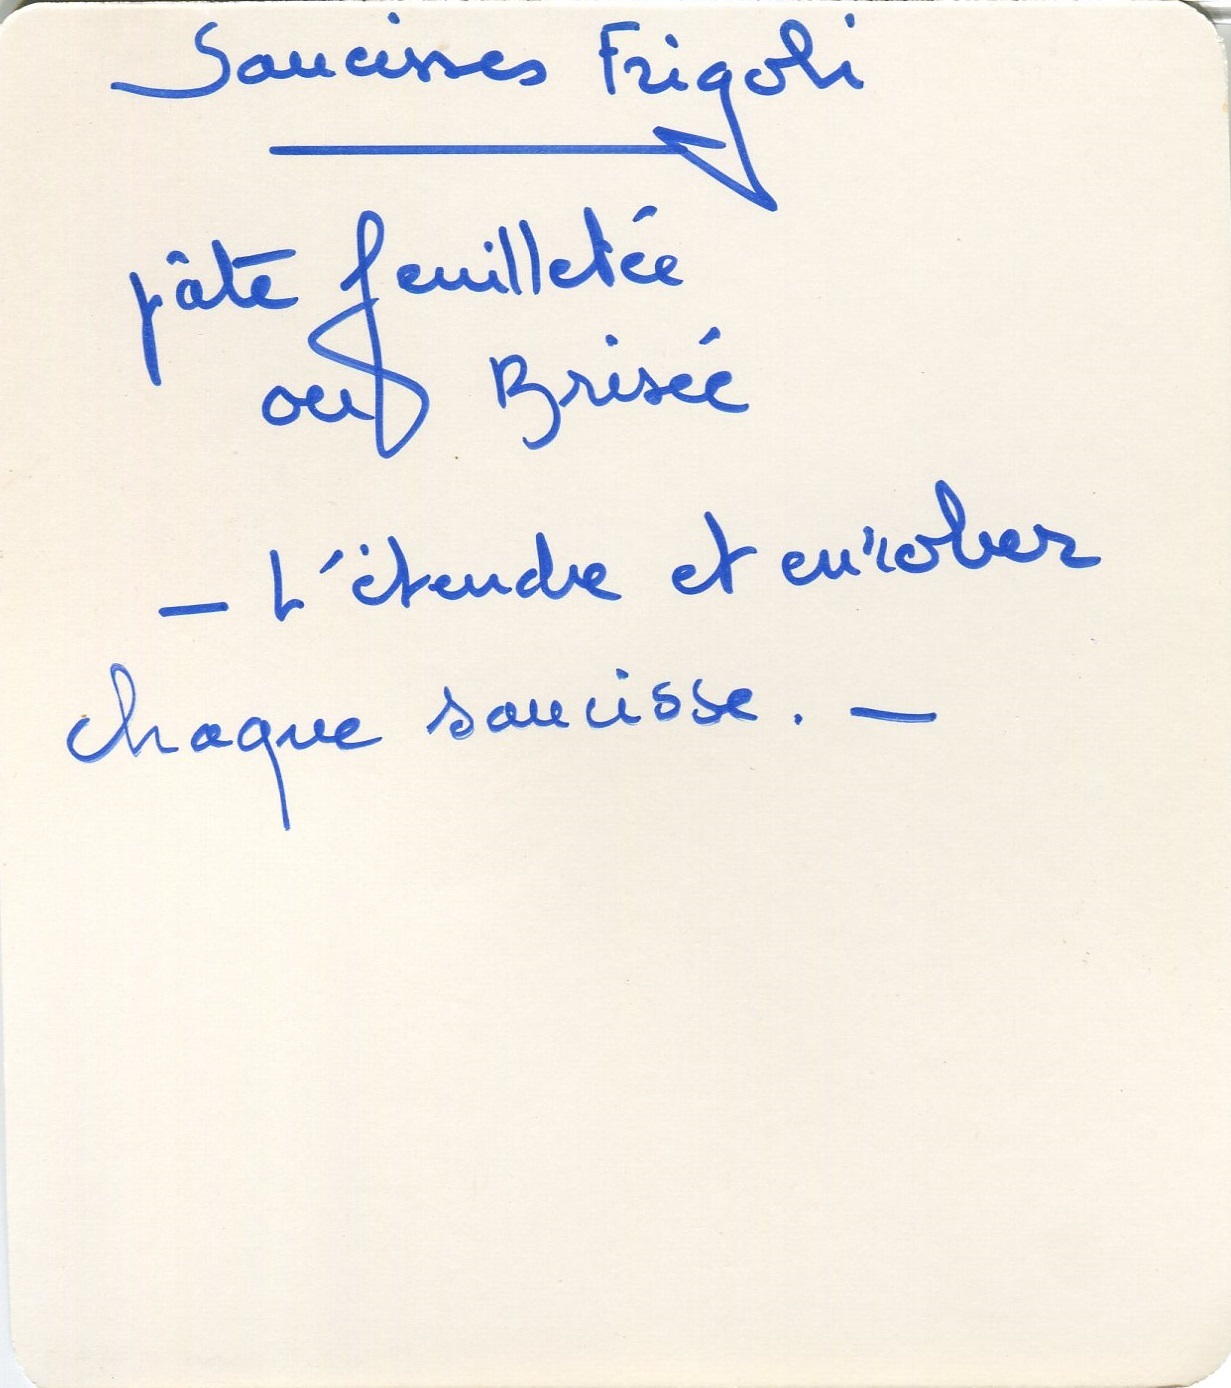 Saucisses Frigoli
pâte feuilletée
ou Brisée
- L'étendre et enrober
chaque saucisse. -